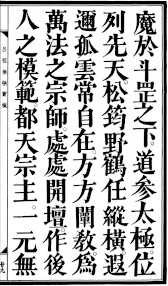 魔於斗罡之下。道參太極位
列先天松筠野鶴任縱橫遐
邇孤雲常自在方方闡教爲
萬法之宗師。處處開壇作後
人之模範都天宗主。一元無